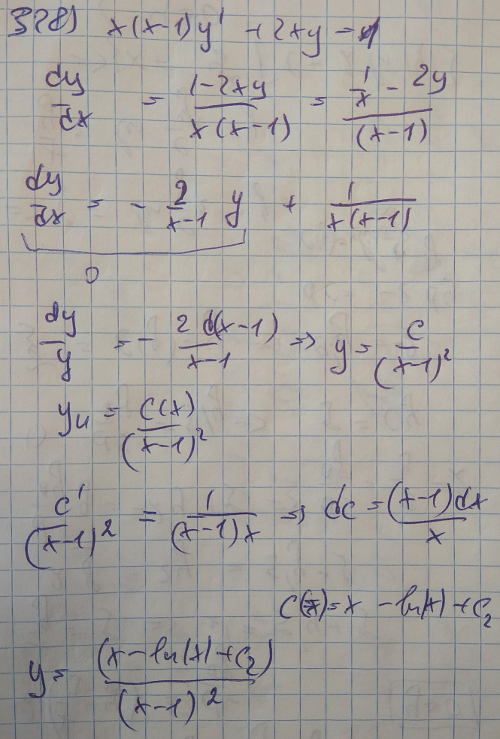 328) x(x-1)y' + 2xy = 1
dy/dx = (1-2xy)/(x(x-1)) = (1/x - 2y)/(x-1)
dy/dx = - 2/(x-1) y + 1/(x(x-1))
0
dy/y = - 2d(x-1)/(x-1) => y = c/(x-1)²
yч = C(x)/(x-1)²
c'/(x-1)² = 1/((x-1)x) => dc = (x-1)dx/x
C(x) = x - ln(x) + C₂
y = (x - ln(x) + C₂)/(x-1)²